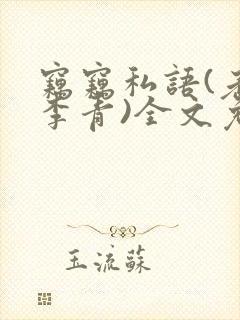 竊竊私語(
李青)全文
玉流蘇